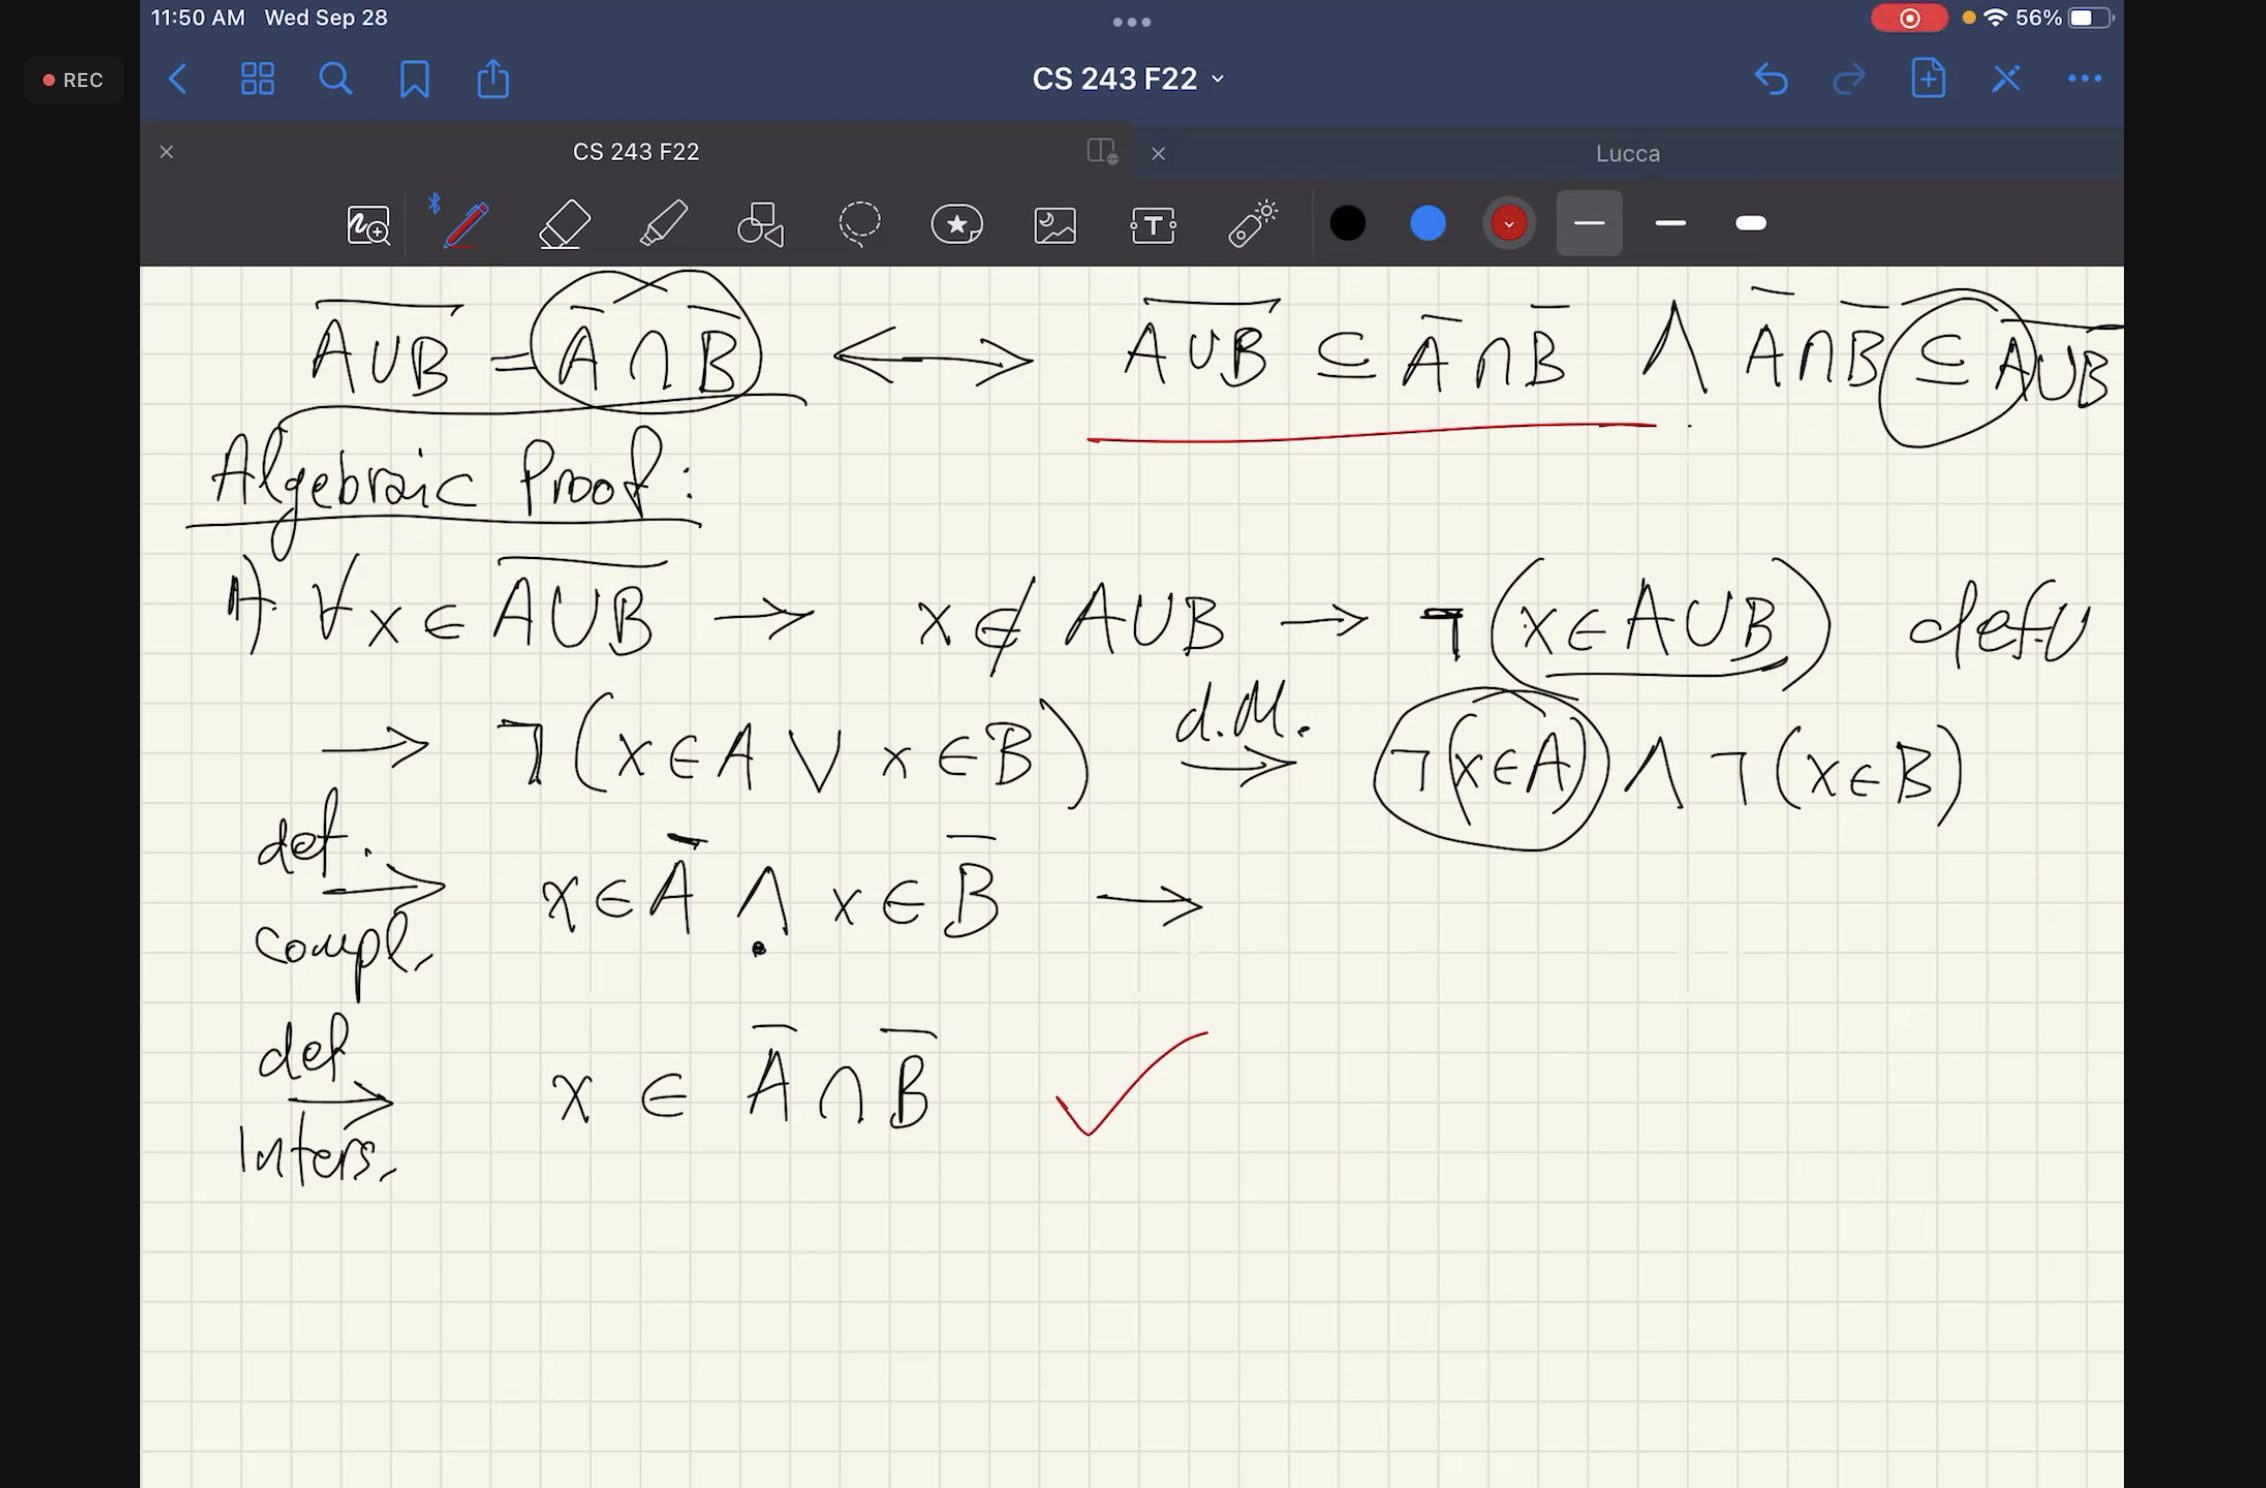 11:50 AM Wed Sep 28 56%
REC
CS 243 F22
CS 243 F22 Lucca
A∪B̅ = A̅ ∩ B̅ ⟷ A∪B̅ ⊆ A̅ ∩ B̅ ∧ A̅ ∩ B̅ ⊆ A∪B̅
Algebraic Proof:
1) ∀x ∈ A∪B̅ → x ∉ A∪B → ¬(x ∈ A∪B) def.∪
→ ¬(x ∈ A ∨ x ∈ B) d.M. → ¬(x ∈ A) ∧ ¬(x ∈ B)
def. compl. → x ∈ A̅ ∧ x ∈ B̅ →
def Inters. → x ∈ A̅ ∩ B̅ ✓